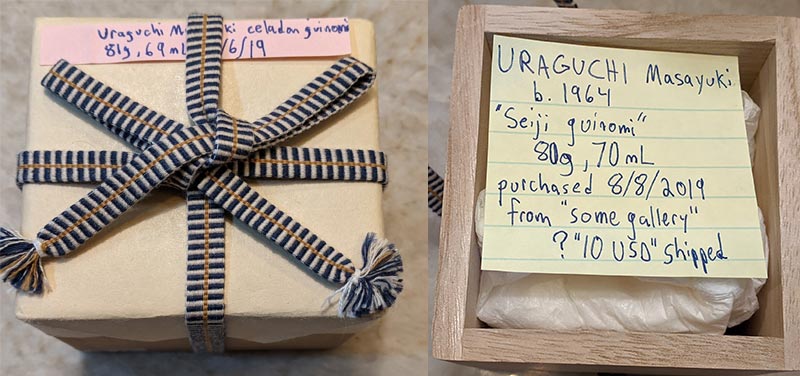 Uraguchi Ma ki celadon guinomi
81g, 69mL /6/19
URAGUCHI Masayuki
b. 1964
"Seiji guinomi"
80g, 70mL
purchased 8/8/2019
from "some gallery"
? "10 USD" shipped